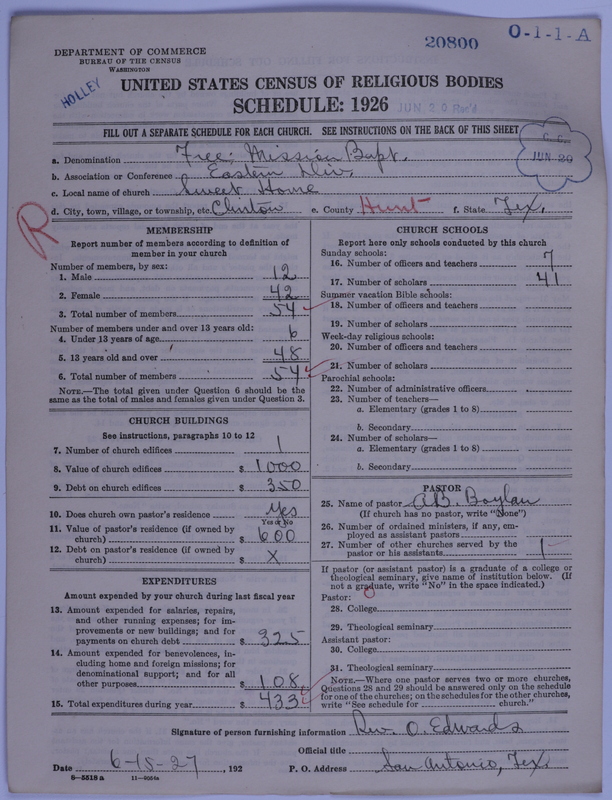 20800
O-1-1-A
DEPARTMENT OF COMMERCE
BUREAU OF THE CENSUS
WASHINGTON
HOLLEY
UNITED STATES CENSUS OF RELIGIOUS BODIES
SCHEDULE: 1926
JUN 20 Rec'd
FILL OUT A SEPARATE SCHEDULE FOR EACH CHURCH. SEE INSTRUCTIONS ON THE BACK OF THIS SHEET
JUN 20
a. Denomination Free: Mission Bapt.
b. Association or Conference Eastern Div.
c. Local name of church Sweet Home
d. City, town, village, or township, etc. Clinton e. County Hunt f. State Tex,
R
MEMBERSHIP
Report number of members according to definition of member in your church
Number of members, by sex:
1. Male 12
2. Female 42
3. Total number of members 54
Number of members under and over 13 years old:
4. Under 13 years of age 6
5. 13 years old and over 48
6. Total number of members 54
NOTE.—The total given under Question 6 should be the
same as the total of males and females given under Question 3.
CHURCH BUILDINGS
See instructions, paragraphs 10 to 12
7. Number of church edifices 1
8. Value of church edifices $ 1000
9. Debt on church edifices $ 350
10. Does church own pastor's residence Yes
Yes or No
11. Value of pastor's residence (if owned by
church) $ 600
12. Debt on pastor's residence (if owned by
church) $ X
EXPENDITURES
Amount expended by your church during last fiscal year
13. Amount expended for salaries, repairs,
and other running expenses; for im-
provements or new buildings; and for
payments on church debt $ 325
14. Amount expended for benevolences, in-
cluding home and foreign missions; for
denominational support; and for all
other purposes $ 108
15. Total expenditures during year $ 433
CHURCH SCHOOLS
Report here only schools conducted by this church
Sunday schools:
16. Number of officers and teachers 7
17. Number of scholars 41
Summer vacation Bible schools:
18. Number of officers and teachers
19. Number of scholars
Week-day religious schools:
20. Number of officers and teachers
21. Number of scholars
Parochial schools:
22. Number of administrative officers
23. Number of teachers—
a. Elementary (grades 1 to 8)
b. Secondary
24. Number of scholars—
a. Elementary (grades 1 to 8)
b. Secondary
PASTOR
25. Name of pastor A.B. Boylan
(If church has no pastor, write "None")
26. Number of ordained ministers, if any, em-
ployed as assistant pastors
27. Number of other churches served by the
pastor or his assistants 1
If pastor (or assistant pastor) is a graduate of a college or
theological seminary, give name of institution below. (If
not a graduate, write "No" in the space indicated.)
Pastor:
28. College
29. Theological seminary
Assistant pastor:
30. College
31. Theological seminary
NOTE.—Where one pastor serves two or more churches,
Questions 28 and 29 should be answered only on the schedule
for one of the churches; on the schedules for the other churches,
write "See schedule for church."
Signature of person furnishing information Rev. O. Edwards
Official title
Date 6-15-27, 192 P. O. Address San Antonio, Tex.
8-5518 a 11-9084a